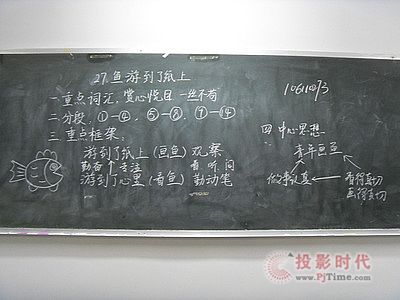 27.鱼游到了纸上
一.重点词汇,赏心悦目 一丝不苟
二.分段,①—④,⑤—⑧,⑨—⑭
三.重点框架.
游到了纸上(画鱼)观察
勤奋 专注 看 听 问
游到了心里(看鱼)勤动笔
四 中心思想
青年画鱼
做事认真
看得真切
画得真切
投影时代
www.PjTime.com